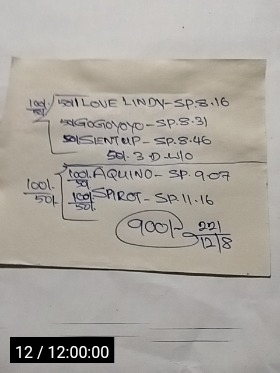 100/- 50/- I LOVE LINDY-SP.8.16
50/- GOGOYOYO-SP.8.31
50/- SIENTUP-SP.8.46
50/- 3.D-410
100/- 50/- 100/- 50/- AQUINO-SP.9.07
100/- 50/- SPIROT-SP.11.16
900/- 221
12/8
12 / 12:00:00